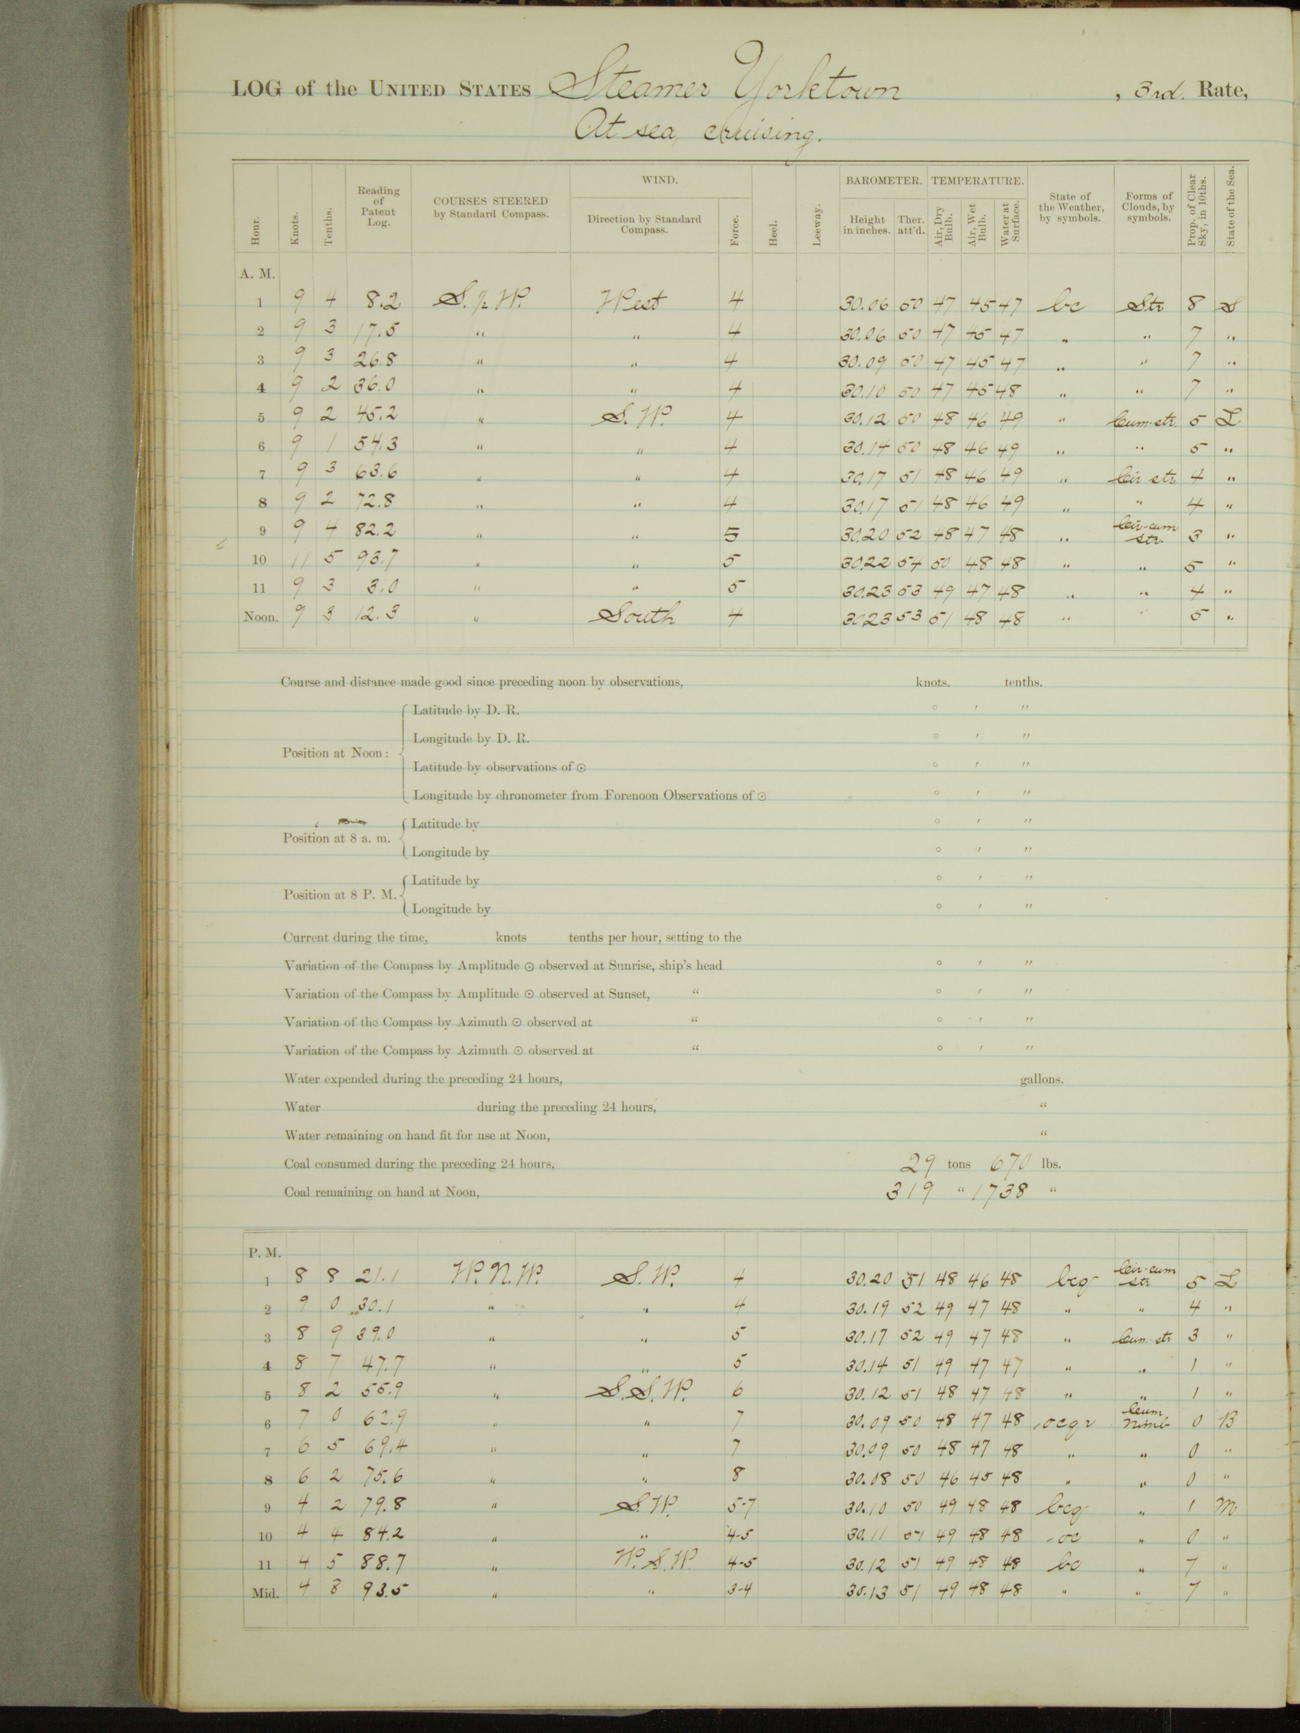 LOG of the UNITED STATES Steamer Yorktown , 3rd. Rate,
At sea, cruising.
Hour. Knots. Tenths. Reading of Patent Log. COURSES STEERED by Standard Compass. WIND. Direction by Standard Compass. Force. Heel. Leeway. BAROMETER. Height in inches. Ther. att'd. TEMPERATURE. Air, Dry Bulb. Air, Wet Bulb. Water at Surface. State of the Weather, by symbols. Forms of Clouds, by symbols. Prop. of Clear Sky, in 10ths. State of the Sea.
A. M.
1 9 4 8.2 S. ½ W. West 4 30.06 50 47 45 47 bc Str 8 S
2 9 3 17.5 " " 4 30.06 50 47 45 47 " " 7 "
3 9 3 26.8 " " 4 30.09 50 47 45 47 " " 7 "
4 9 2 36.0 " " 4 30.10 50 47 45 48 " " 7 "
5 9 2 45.2 " S. W. 4 30.12 50 48 46 49 " Cum-str. 5 L
6 9 1 54.3 " " 4 30.14 50 48 46 49 " " 5 "
7 9 3 63.6 " " 4 30.17 51 48 46 49 " Cir str 4 "
8 9 2 72.8 " " 4 30.17 51 48 46 49 " " 4 "
9 9 4 82.2 " " 5 30.20 52 48 47 48 " Cir-cum str 3 "
10 11 5 93.7 " " 5 30.22 54 50 48 48 " " 5 "
11 9 3 3.0 " " 5 30.23 53 49 47 48 " " 4 "
Noon. 9 3 12.3 " South 4 30.23 53 51 48 48 " " 5 "
Course and distance made good since preceding noon by observations, knots. tenths.
Position at Noon: Latitude by D. R. ° ′ ″
Longitude by D. R. ° ′ ″
Latitude by observations of ☉ ° ′ ″
Longitude by chronometer from Forenoon Observations of ☉ ° ′ ″
Position at 8 a. m. Latitude by ° ′ ″
Longitude by ° ′ ″
Position at 8 P. M. Latitude by ° ′ ″
Longitude by ° ′ ″
Current during the time, knots tenths per hour, setting to the
Variation of the Compass by Amplitude ☉ observed at Sunrise, ship's head ° ′ ″
Variation of the Compass by Amplitude ☉ observed at Sunset, " ° ′ ″
Variation of the Compass by Azimuth ☉ observed at " ° ′ ″
Variation of the Compass by Azimuth ☉ observed at " ° ′ ″
Water expended during the preceding 24 hours, gallons.
Water during the preceding 24 hours, "
Water remaining on hand fit for use at Noon, "
Coal consumed during the preceding 24 hours, 29 tons 670 lbs.
Coal remaining on hand at Noon, 319 " 1738 "
P. M.
1 8 8 21.1 W. N. W. S. W. 4 30.20 51 48 46 48 bcq Cir-cum str 5 L
2 9 0 30.1 " " 4 30.19 52 49 47 48 " " 4 "
3 8 9 39.0 " " 5 30.17 52 49 47 48 " Cum-str 3 "
4 8 7 47.7 " " 5 30.14 51 49 47 47 " " 1 "
5 8 2 55.9 " S. S. W. 6 30.12 51 48 47 48 " " 1 "
6 7 0 62.9 " " 7 30.09 50 48 47 48 ocqr Cum Nimb 0 B
7 6 5 69.4 " " 7 30.09 50 48 47 48 " " 0 "
8 6 2 75.6 " " 8 30.08 50 46 45 48 " " 0 "
9 4 2 79.8 " S. W. 5-7 30.10 50 49 48 48 bcq " 1 M
10 4 4 84.2 " " 4-5 30.11 51 49 48 48 oc " 0 "
11 4 5 88.7 " W. S. W. 4-5 30.12 51 49 48 48 bc " 7 "
Mid. 4 8 93.5 " " 3-4 30.13 51 49 48 48 " " 7 "